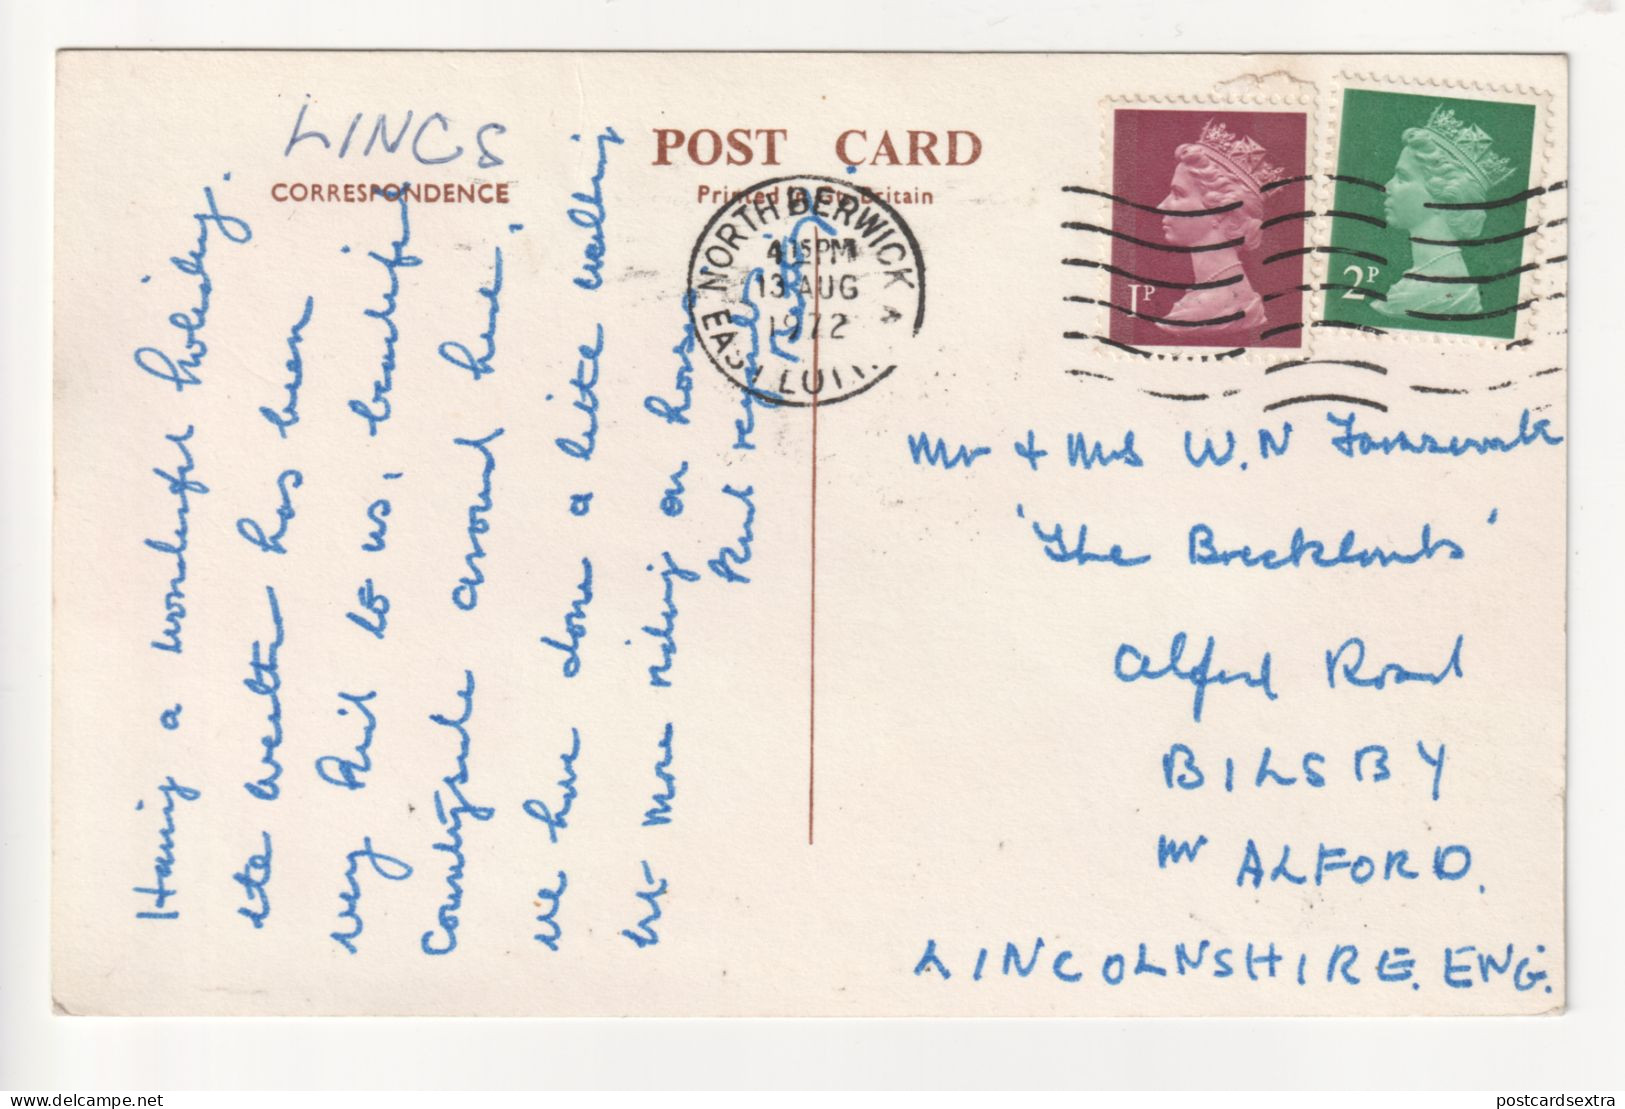 LINCS
POST CARD
CORRESPONDENCE
Printed in Gt. Britain
Having a wonderful holiday.
the weather has been
very kind to us, beautiful
countryside around here,
we have done a little walking
but more riding on horse
Kind regards
NORTH BERWICK
4 15 PM
13 AUG
1972
EAST
1P
2P
Mr & Mrs W.N
'The Brecklands'
Alford Road
BILSBY
nr ALFORD.
LINCOLNSHIRE. ENG.
delcampe.net
postcardsextra